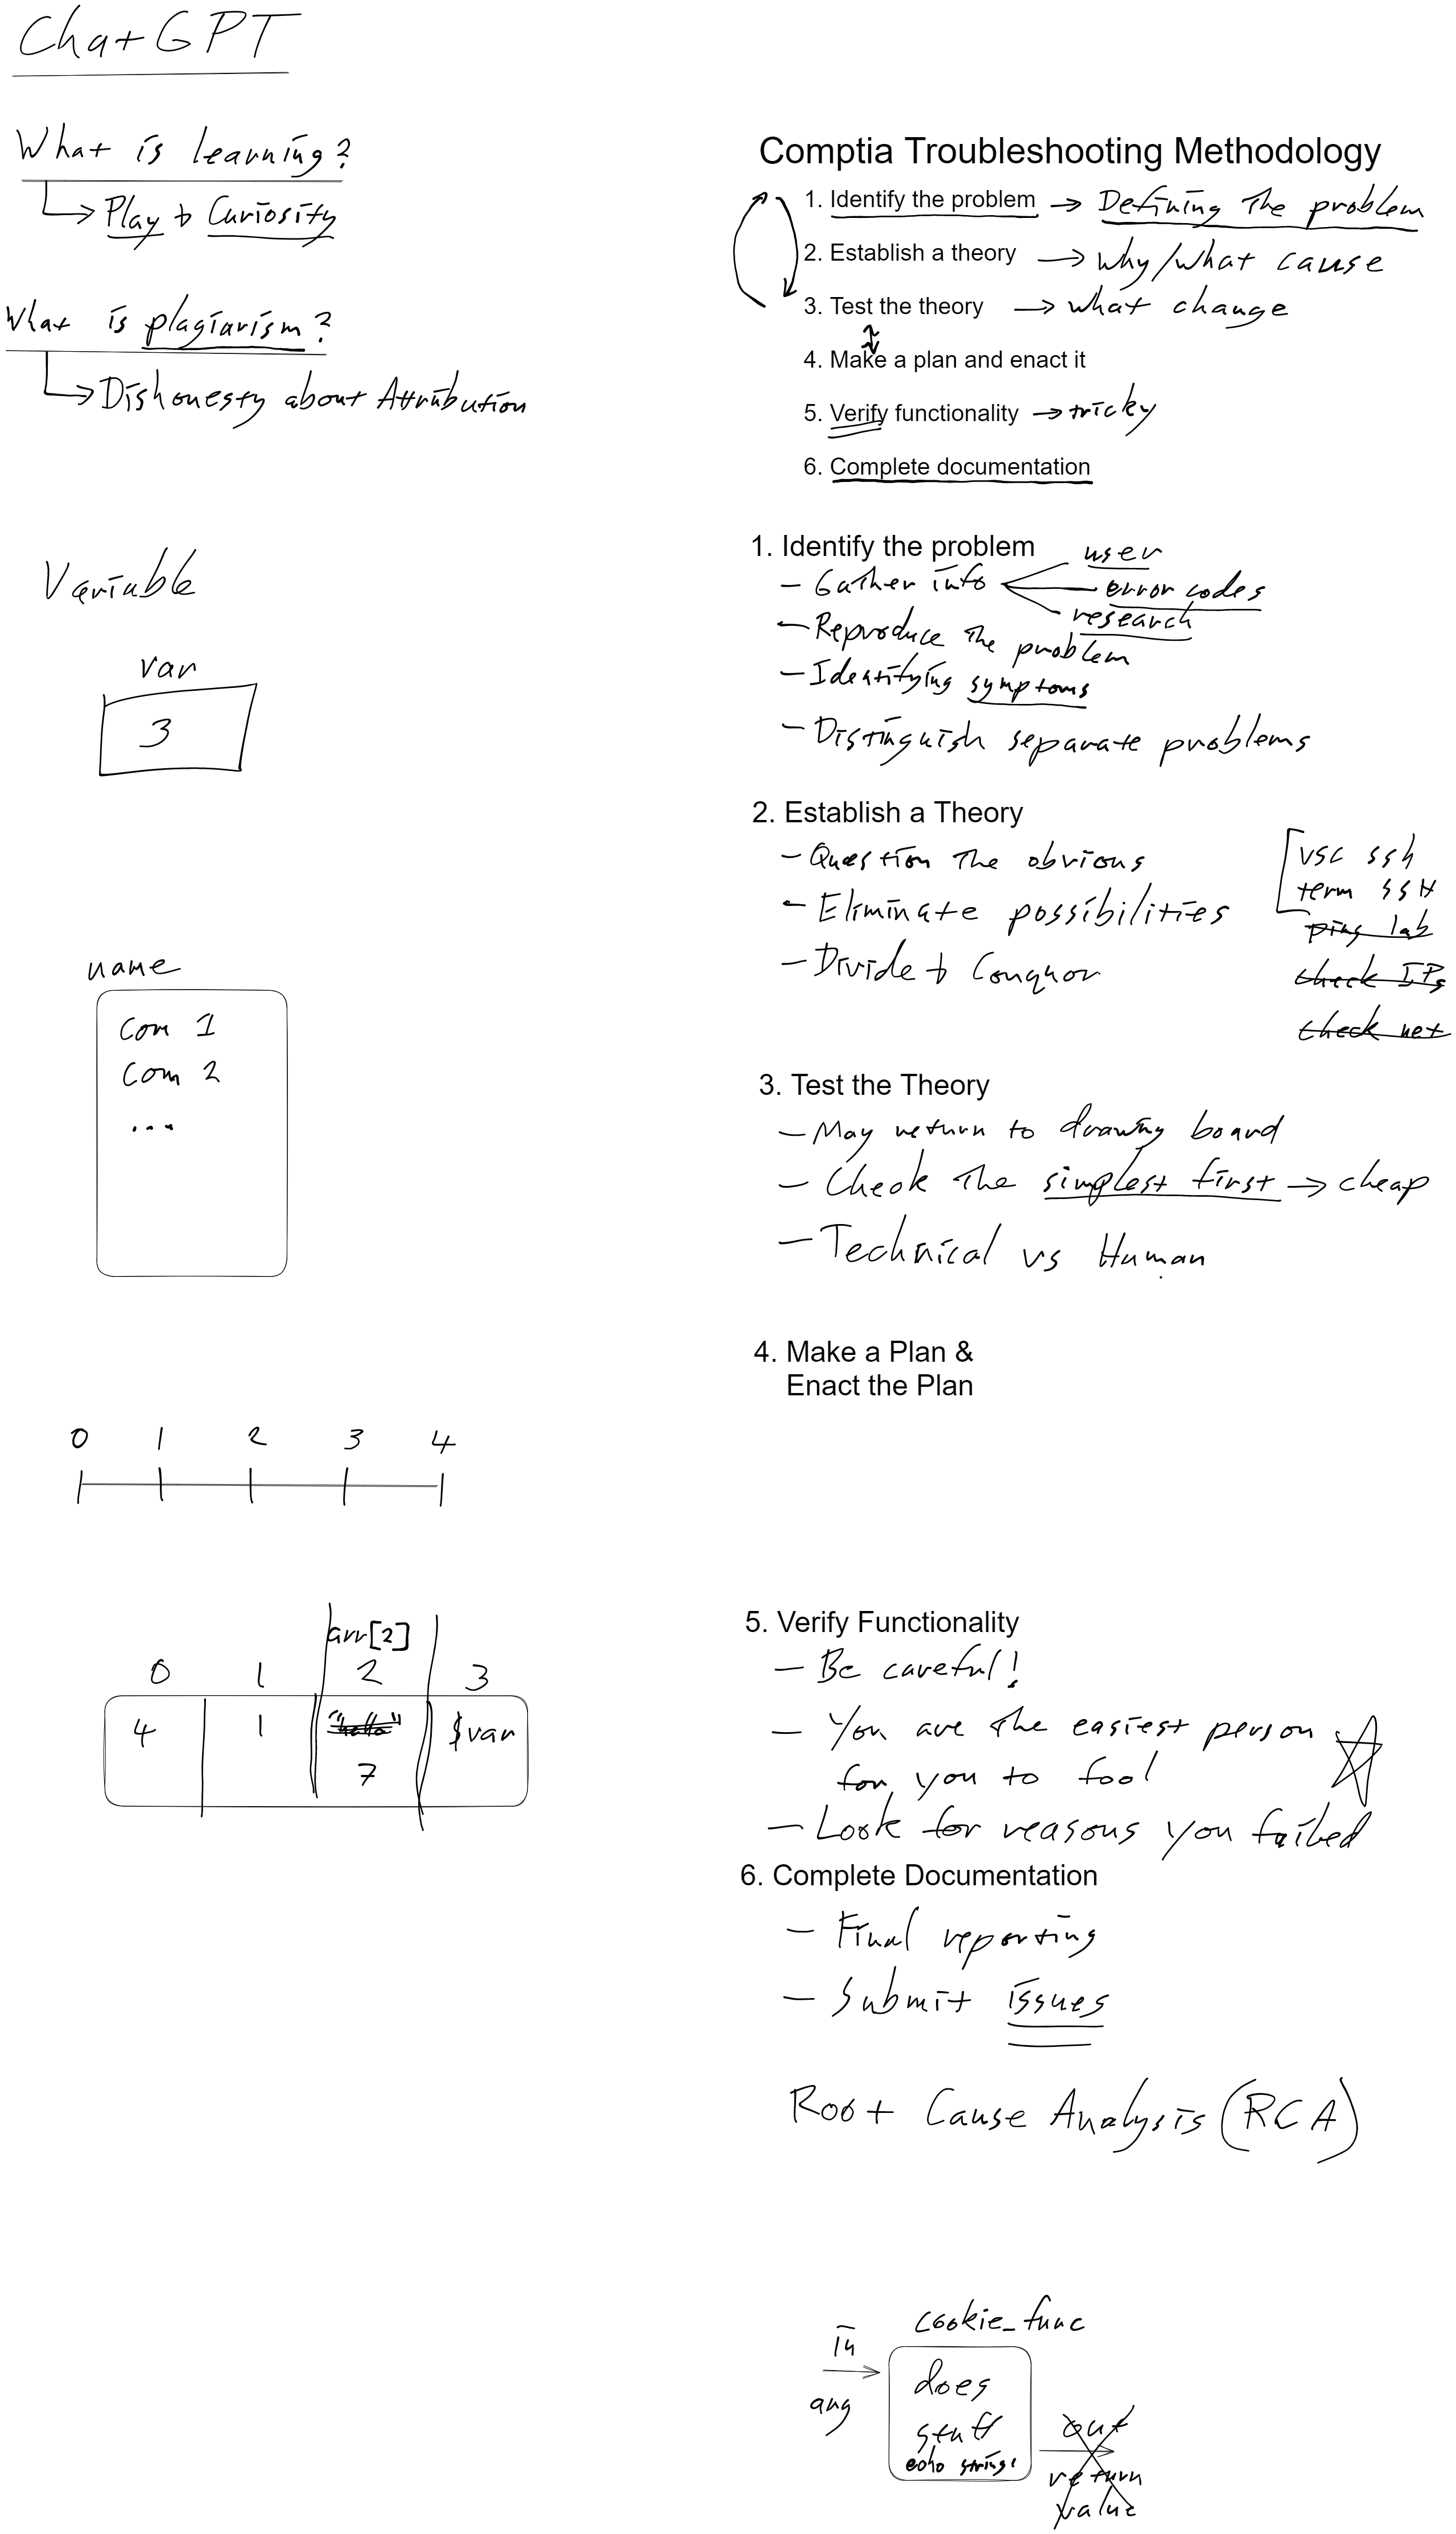 ChatGPT
What is learning?
Play & Curiosity
What is plagiarism?
Dishonesty about Attribution
Variable
var
3
name
Com 1
Com 2
...
0 1 2 3 4
arr[2]
0 1 2 3
4 1 "hello" $var
7
Comptia Troubleshooting Methodology
1. Identify the problem → Defining the problem
2. Establish a theory → Why/What cause
3. Test the theory → what change
4. Make a plan and enact it
5. Verify functionality → tricky
6. Complete documentation
1. Identify the problem
- Gather info
user
error codes
research
- Reproduce the problem
- Identifying symptoms
- Distinguish separate problems
2. Establish a Theory
- Question the obvious
- Eliminate possibilities
- Divide & Conquor
vsc ssh
term SSH
ping lab
check IPs
check net
3. Test the Theory
- May return to drawing board
- Check the simplest first → cheap
- Technical vs Human
4. Make a Plan &
Enact the Plan
5. Verify Functionality
- Be careful!
- You are the easiest person
for you to fool
- Look for reasons you failed
6. Complete Documentation
- Final reporting
- Submit issues
Root Cause Analysis (RCA)
cookie_func
in
arg
does
stuff
echo string
out
return
value